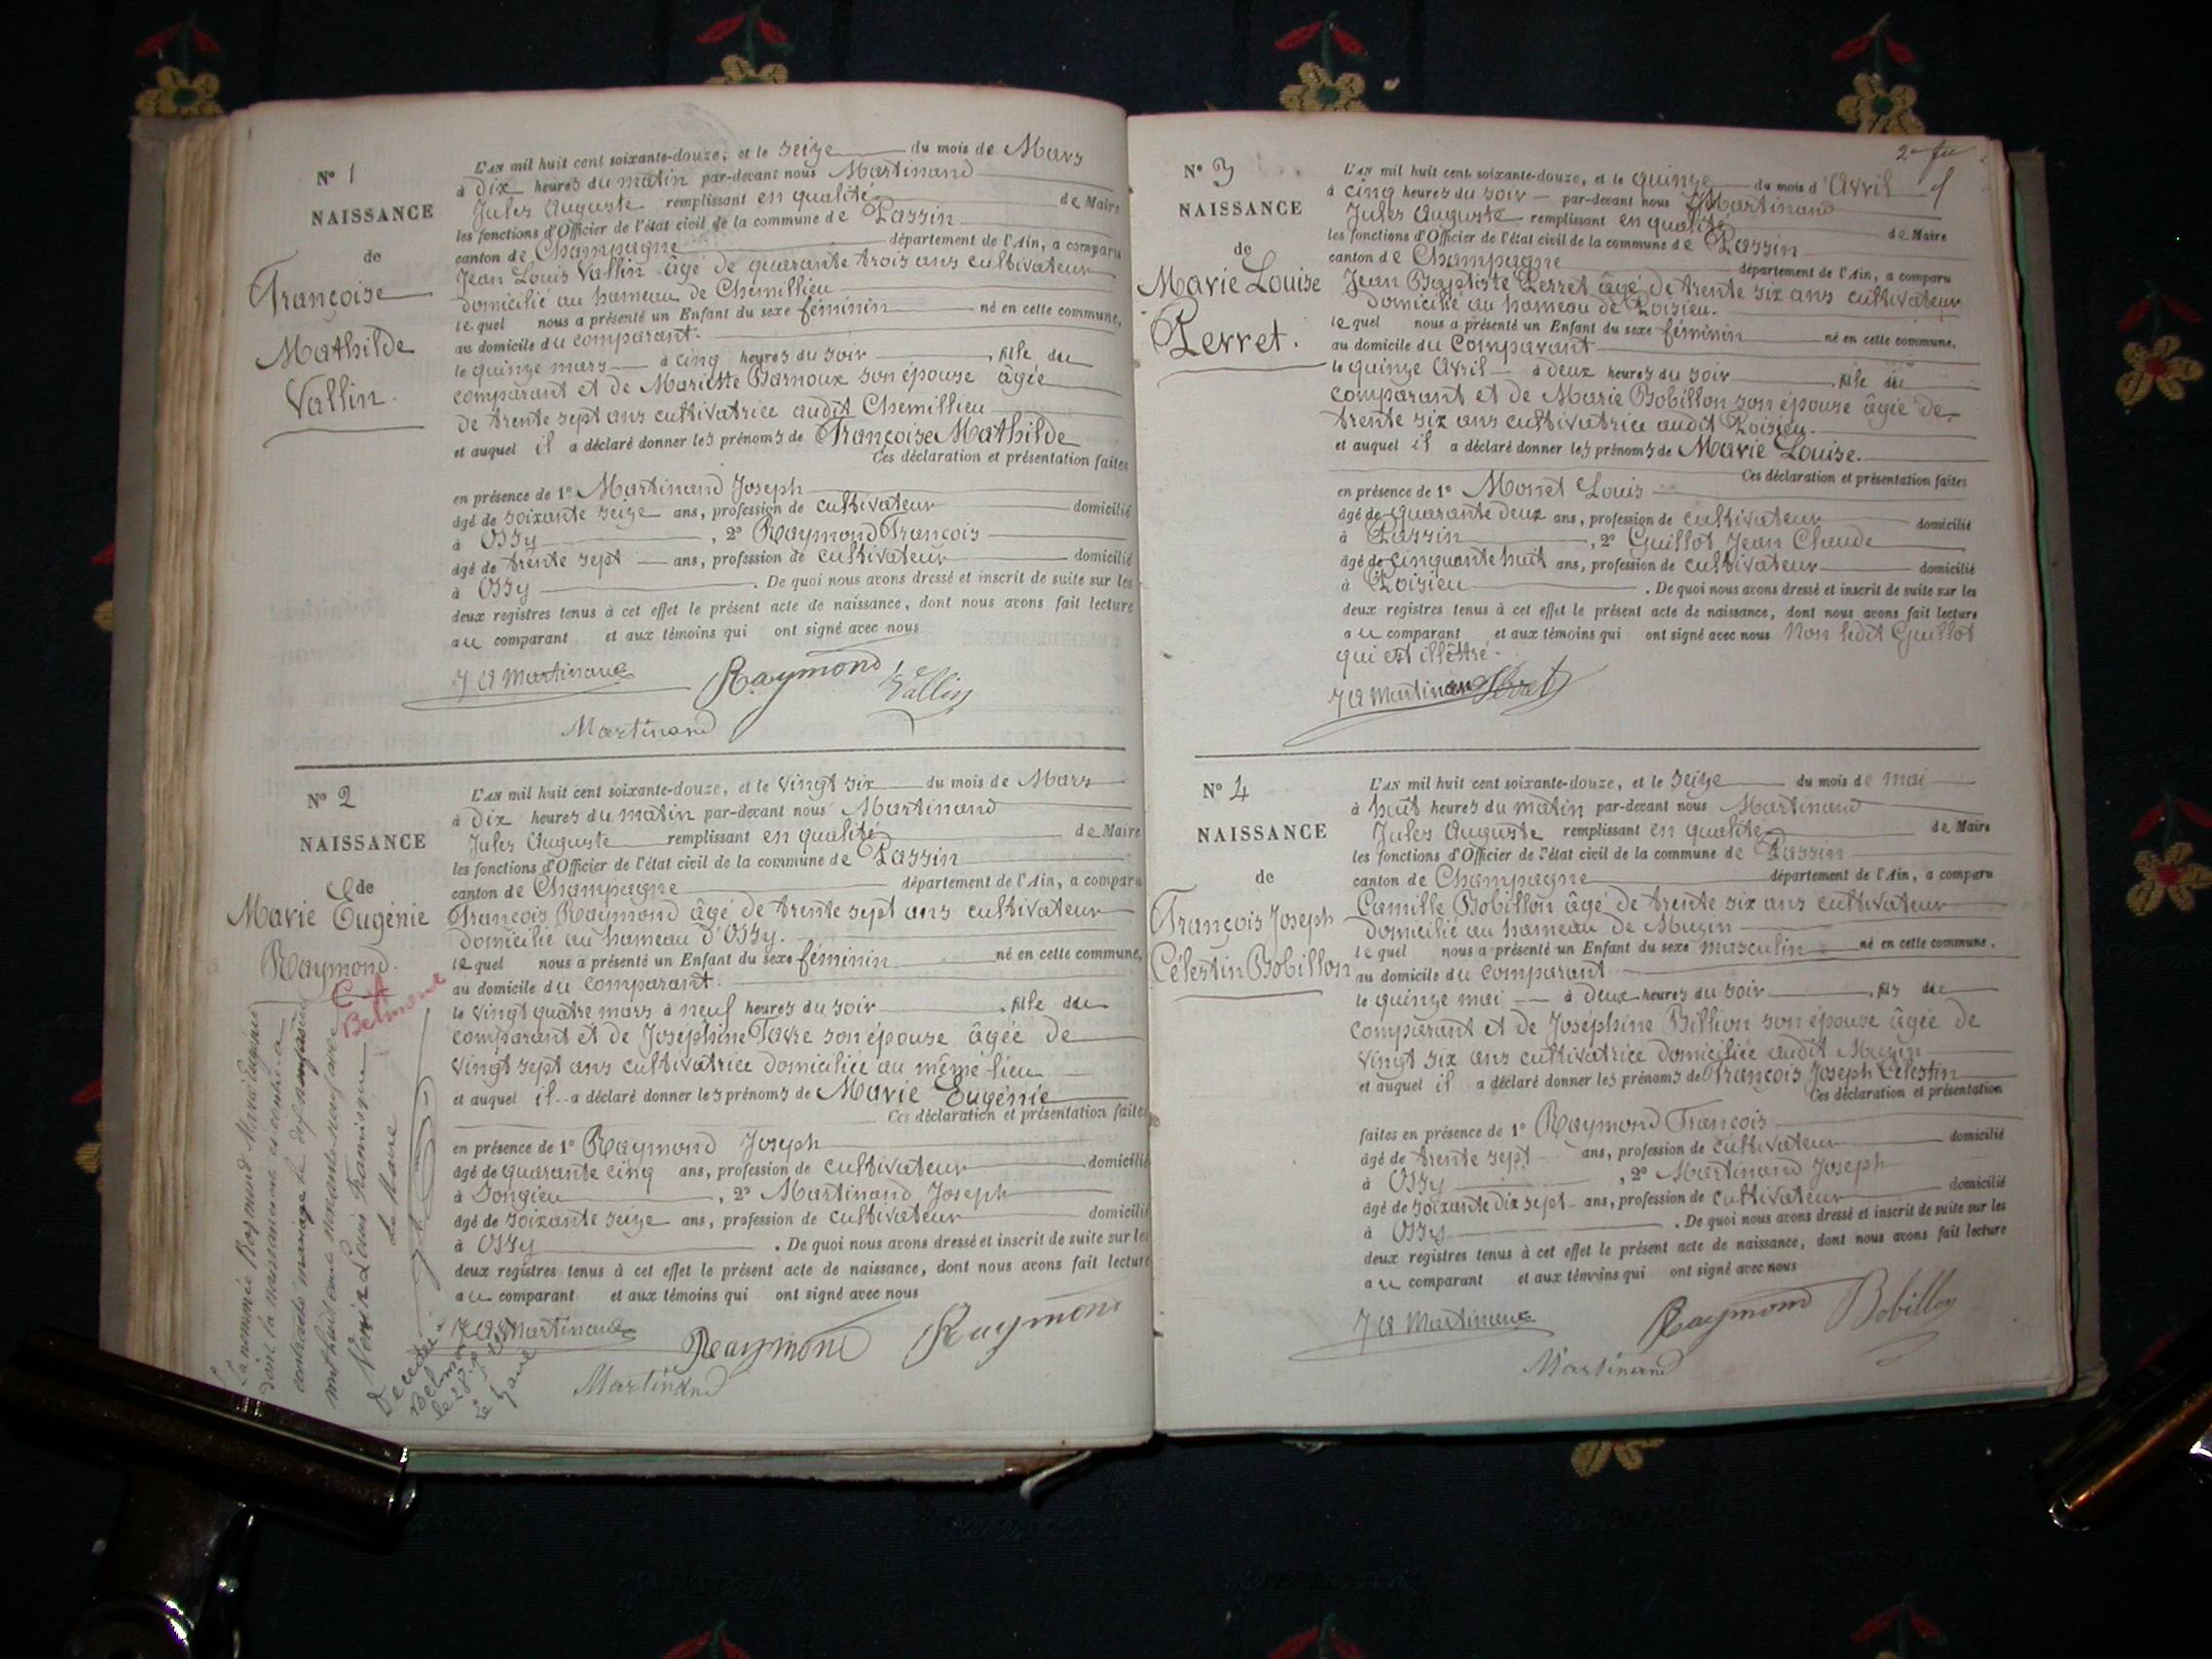 N° 1
NAISSANCE
de
Françoise
Mathilde
Vallin.
L'AN mil huit cent soixante-douze, et le seize du mois de Mars
à dix heures du matin par-devant nous Martinand
Jules Auguste remplissant en qualité de Maire
les fonctions d'Officier de l'état civil de la commune de Passin
canton de Champagne département de l'Ain, a comparu
Jean Louis Vallin âgé de quarante trois ans cultivateur
domicilié au hameau de Chemillieu
lequel nous a présenté un Enfant du sexe féminin né en cette commune,
au domicile du comparant.
le quinze mars à cinq heures du soir, fille du
comparant et de Mariette Barnoux son épouse âgée
de trente sept ans cultivatrice audit Chemillieu
et auquel il a déclaré donner les prénoms de Françoise Mathilde
Ces déclaration et présentation faites
en présence de 1° Martinand Joseph
âgé de soixante seize ans, profession de cultivateur domicilié
à Ossy, 2° Raymond François
âgé de trente sept ans, profession de cultivateur domicilié
à Ossy. De quoi nous avons dressé et inscrit de suite sur les
deux registres tenus à cet effet le présent acte de naissance, dont nous avons fait lecture
au comparant et aux témoins qui ont signé avec nous
J A Martinand Raymond Vallin
Martinand
N° 2
NAISSANCE
de
Marie Eugénie
Raymond.
Belmont
La nommée Raymond Marie Eugénie
dont la naissance est ci-contre a
contracté mariage le
mil huit cent
Louis François
Le Maire
Décédée
Belmont
le 28
L'AN mil huit cent soixante-douze, et le vingt six du mois de Mars
à dix heures du matin par-devant nous Martinand
Jules Auguste remplissant en qualité de Maire
les fonctions d'Officier de l'état civil de la commune de Passin
canton de Champagne département de l'Ain, a comparu
François Raymond âgé de trente sept ans cultivateur
domicilié au hameau d'Ossy.
lequel nous a présenté un Enfant du sexe féminin né en cette commune,
au domicile du comparant.
le vingt quatre mars à neuf heures du soir, fille du
comparant et de Joséphine Favre son épouse âgée de
vingt sept ans cultivatrice domiciliée au même lieu
et auquel il a déclaré donner les prénoms de Marie Eugénie
Ces déclaration et présentation faites
en présence de 1° Raymond Joseph
âgé de quarante cinq ans, profession de cultivateur domicilié
à Songieu, 2° Martinand Joseph
âgé de soixante seize ans, profession de cultivateur domicilié
à Ossy. De quoi nous avons dressé et inscrit de suite sur les
deux registres tenus à cet effet le présent acte de naissance, dont nous avons fait lecture
au comparant et aux témoins qui ont signé avec nous
J A Martinand Raymond Raymond
Martinand
N° 3
NAISSANCE
de
Marie Louise
Perret.
L'AN mil huit cent soixante-douze, et le quinze du mois d'Avril
à cinq heures du soir par-devant nous Martinand
Jules Auguste remplissant en qualité de Maire
les fonctions d'Officier de l'état civil de la commune de Passin
canton de Champagne département de l'Ain, a comparu
Jean Baptiste Perret âgé de trente six ans cultivateur
domicilié au hameau de Poisieu.
lequel nous a présenté un Enfant du sexe féminin né en cette commune,
au domicile du comparant
le quinze Avril à deux heures du soir, fille du
comparant et de Marie Bobillon son épouse âgée de
trente six ans cultivatrice audit Poisieu.
et auquel il a déclaré donner les prénoms de Marie Louise.
Ces déclaration et présentation faites
en présence de 1° Monet Louis
âgé de quarante deux ans, profession de cultivateur domicilié
à Passin, 2° Guillot Jean Claude
âgé de cinquante huit ans, profession de cultivateur domicilié
à Poisieu. De quoi nous avons dressé et inscrit de suite sur les
deux registres tenus à cet effet le présent acte de naissance, dont nous avons fait lecture
au comparant et aux témoins qui ont signé avec nous Non ledit Guillot
qui est illétré.
J A Martinand Perret
N° 4
NAISSANCE
de
François Joseph
Célestin Bobillon
L'AN mil huit cent soixante-douze, et le seize du mois de mai
à huit heures du matin par-devant nous Martinand
Jules Auguste remplissant en qualité de Maire
les fonctions d'Officier de l'état civil de la commune de Passin
canton de Champagne département de l'Ain, a comparu
Camille Bobillon âgé de trente six ans cultivateur
domicilié au hameau de Muzin
lequel nous a présenté un Enfant du sexe masculin né en cette commune,
au domicile du comparant
le quinze mai à deux heures du soir, fils du
comparant et de Joséphine Billion son épouse âgée de
vingt six ans cultivatrice domiciliée audit Muzin
et auquel il a déclaré donner les prénoms de François Joseph Célestin
Ces déclaration et présentation
faites en présence de 1° Raymond François
âgé de trente sept ans, profession de cultivateur domicilié
à Ossy, 2° Martinand Joseph
âgé de soixante dix sept ans, profession de cultivateur domicilié
à Ossy. De quoi nous avons dressé et inscrit de suite sur les
deux registres tenus à cet effet le présent acte de naissance, dont nous avons fait lecture
au comparant et aux témoins qui ont signé avec nous
J A Martinand Raymond Bobillon
Martinand